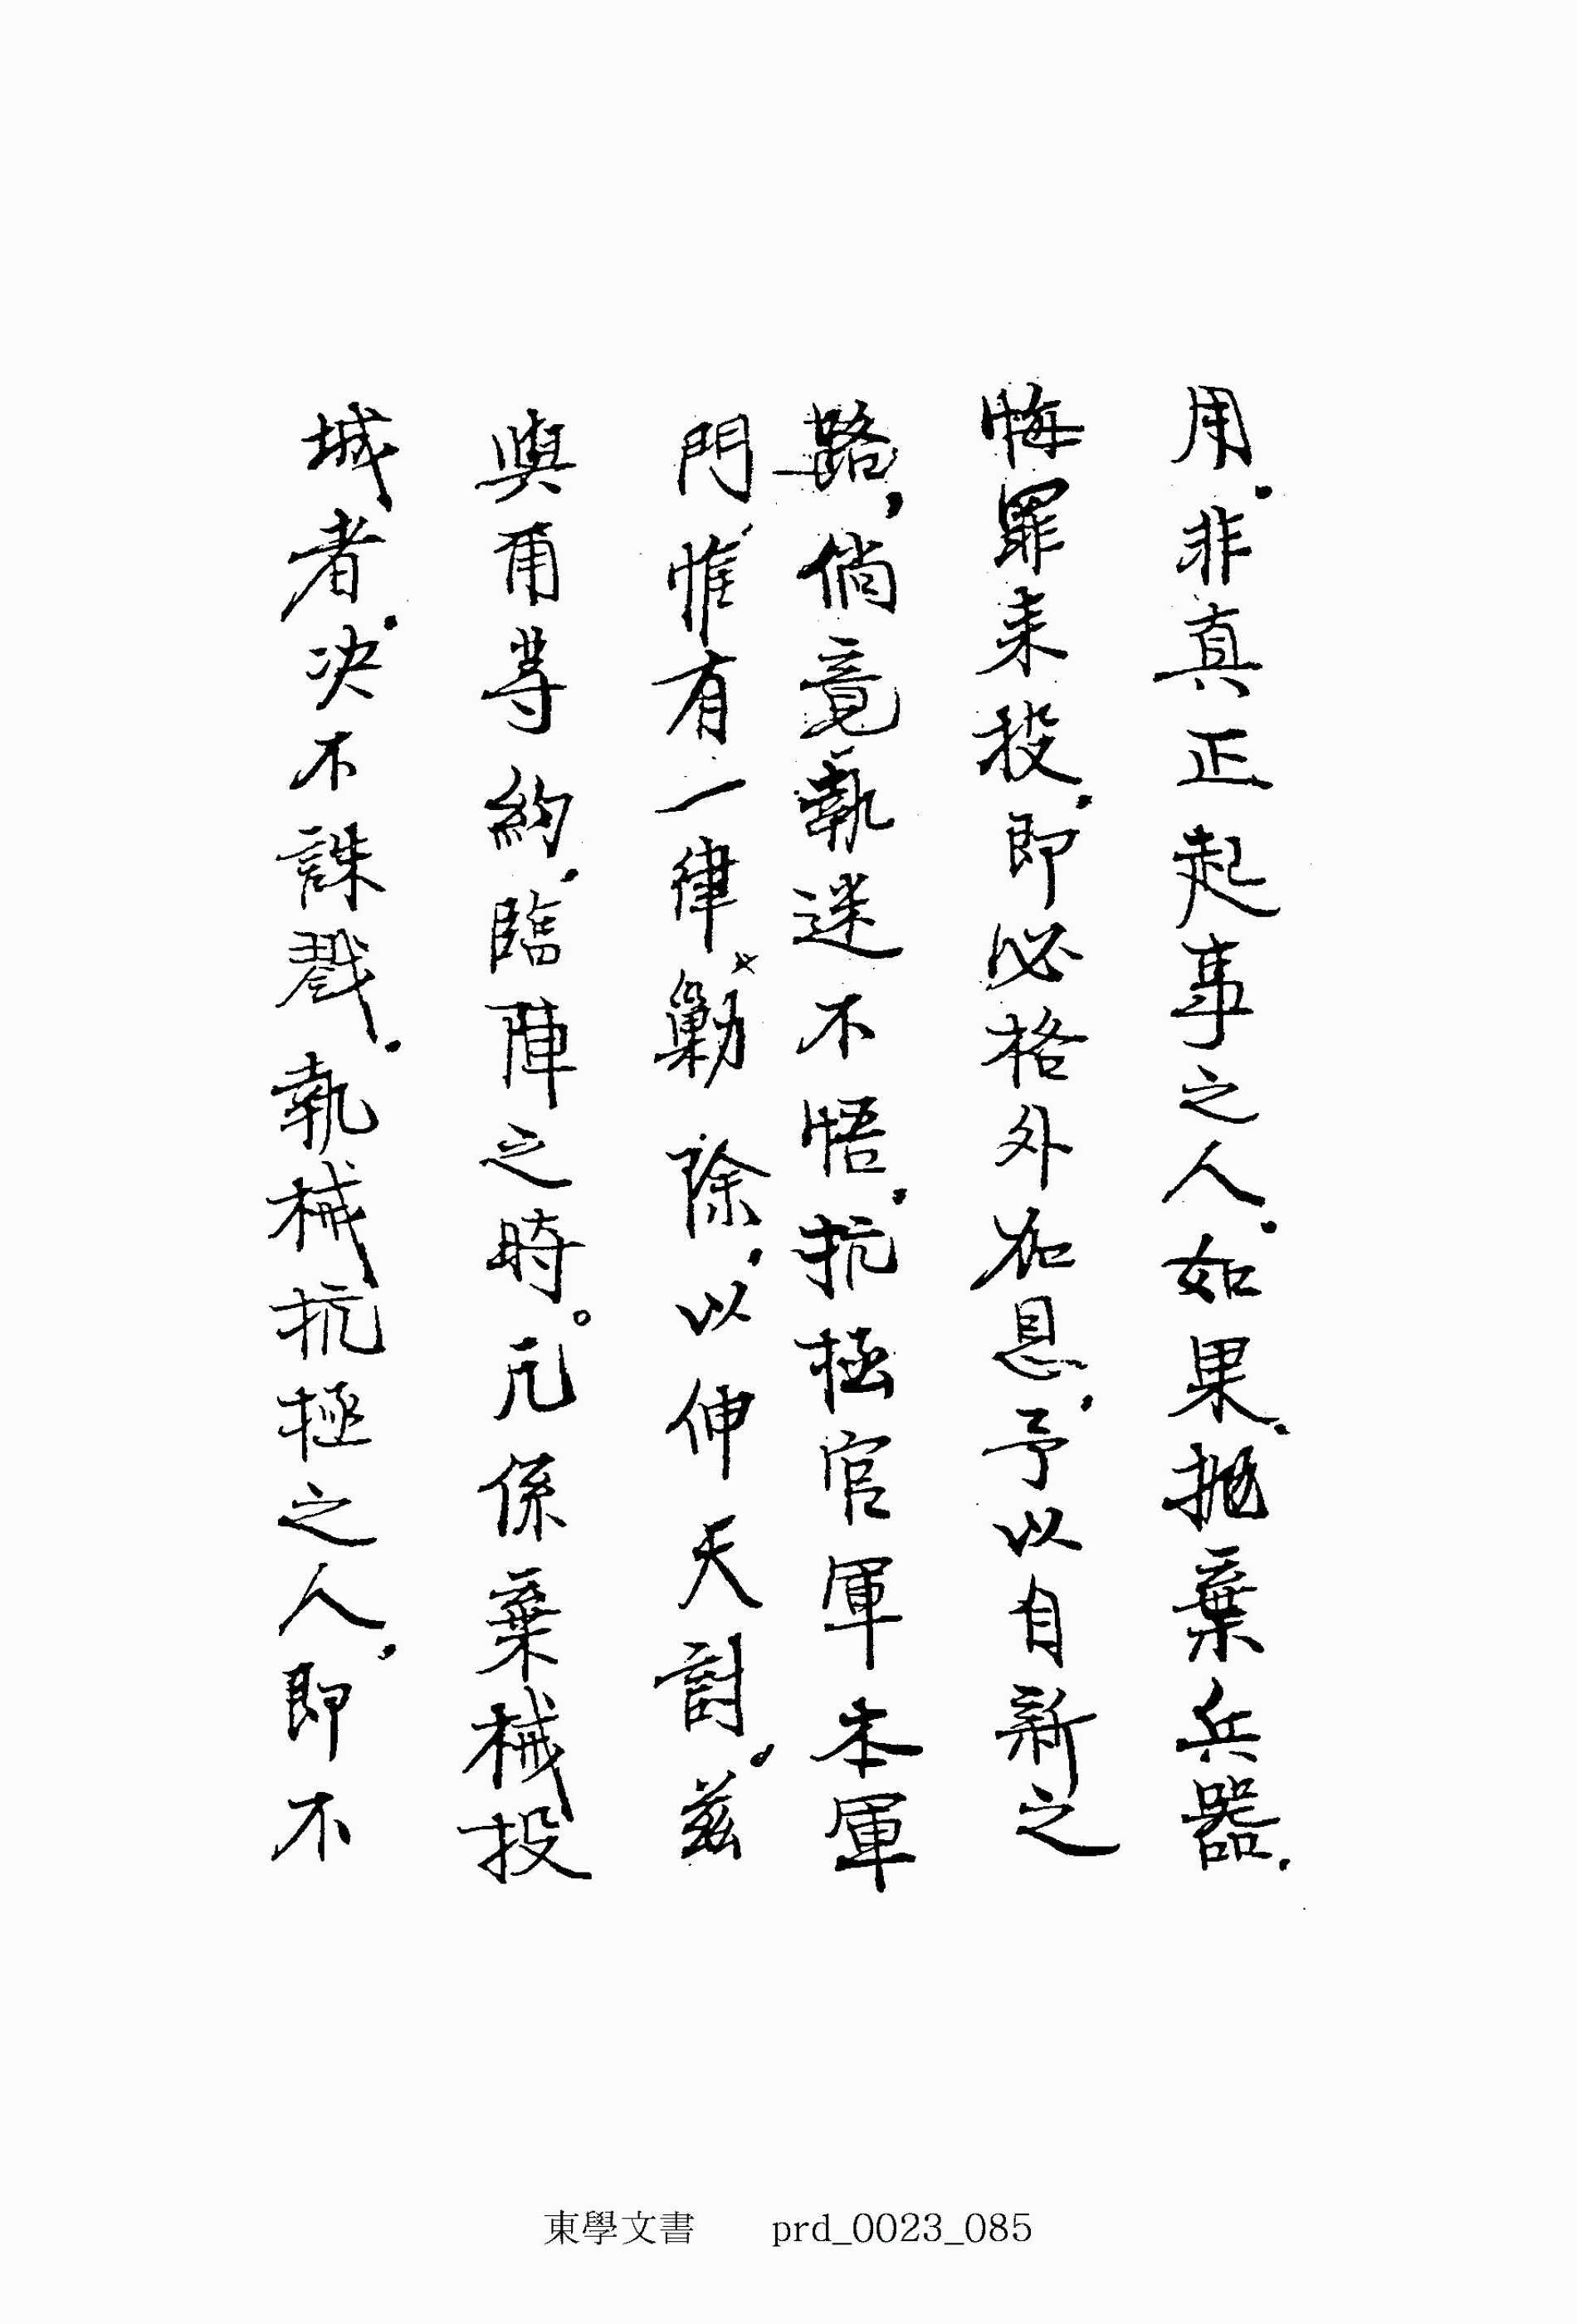 用。非真正起事之人。如果、抛棄兵器、
悔罪来投、即必格外加恩、予以自新之
路、倘竟執迷不悟、抗極官軍本軍
門、惟有一律勦除、以伸天討。茲
與甭等約、臨陣之時。凡係棄械投
城者、决不誅戮。執械抗極之人、即不
東學文書 prd_0023_085